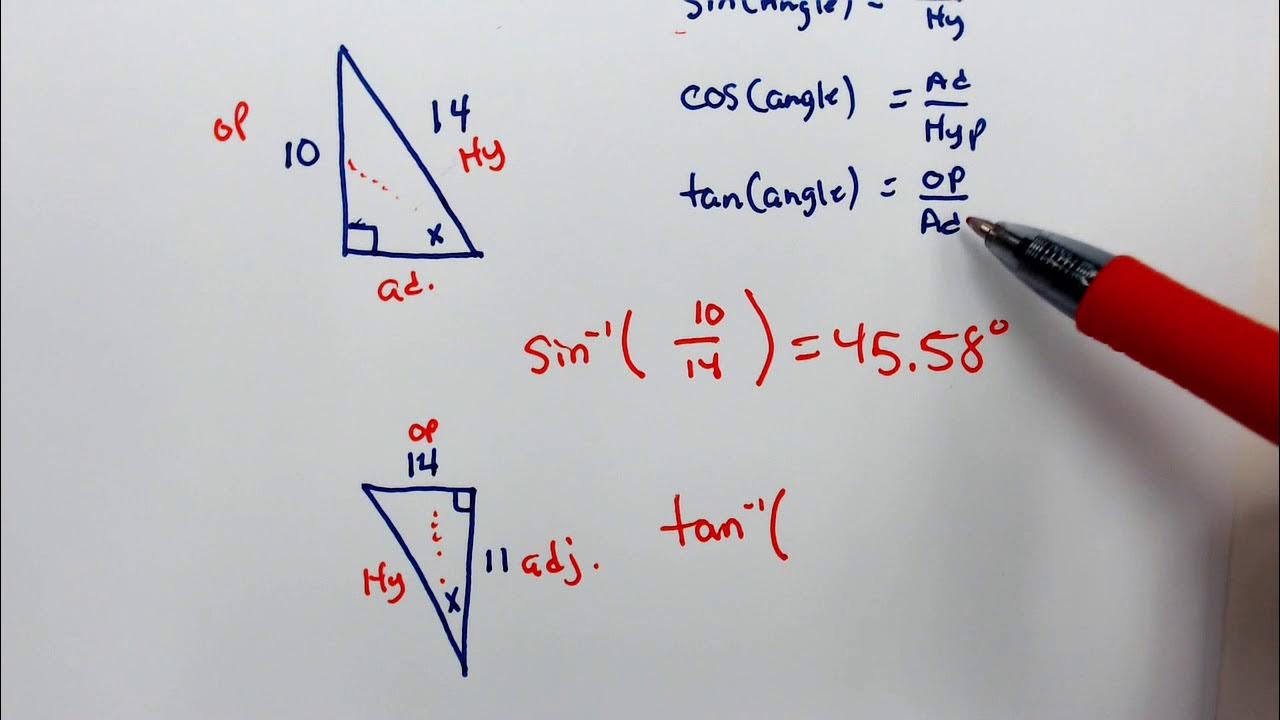 sin(Angle) =
Hy
cos(angle) = Ad
Hyp
tan(angle) = OP
Ad
OP
10
14
Hy
x
ad.
sin⁻¹( 10/14 ) = 45.58°
OP
14
Hy
x
11 adj.
tan⁻¹(